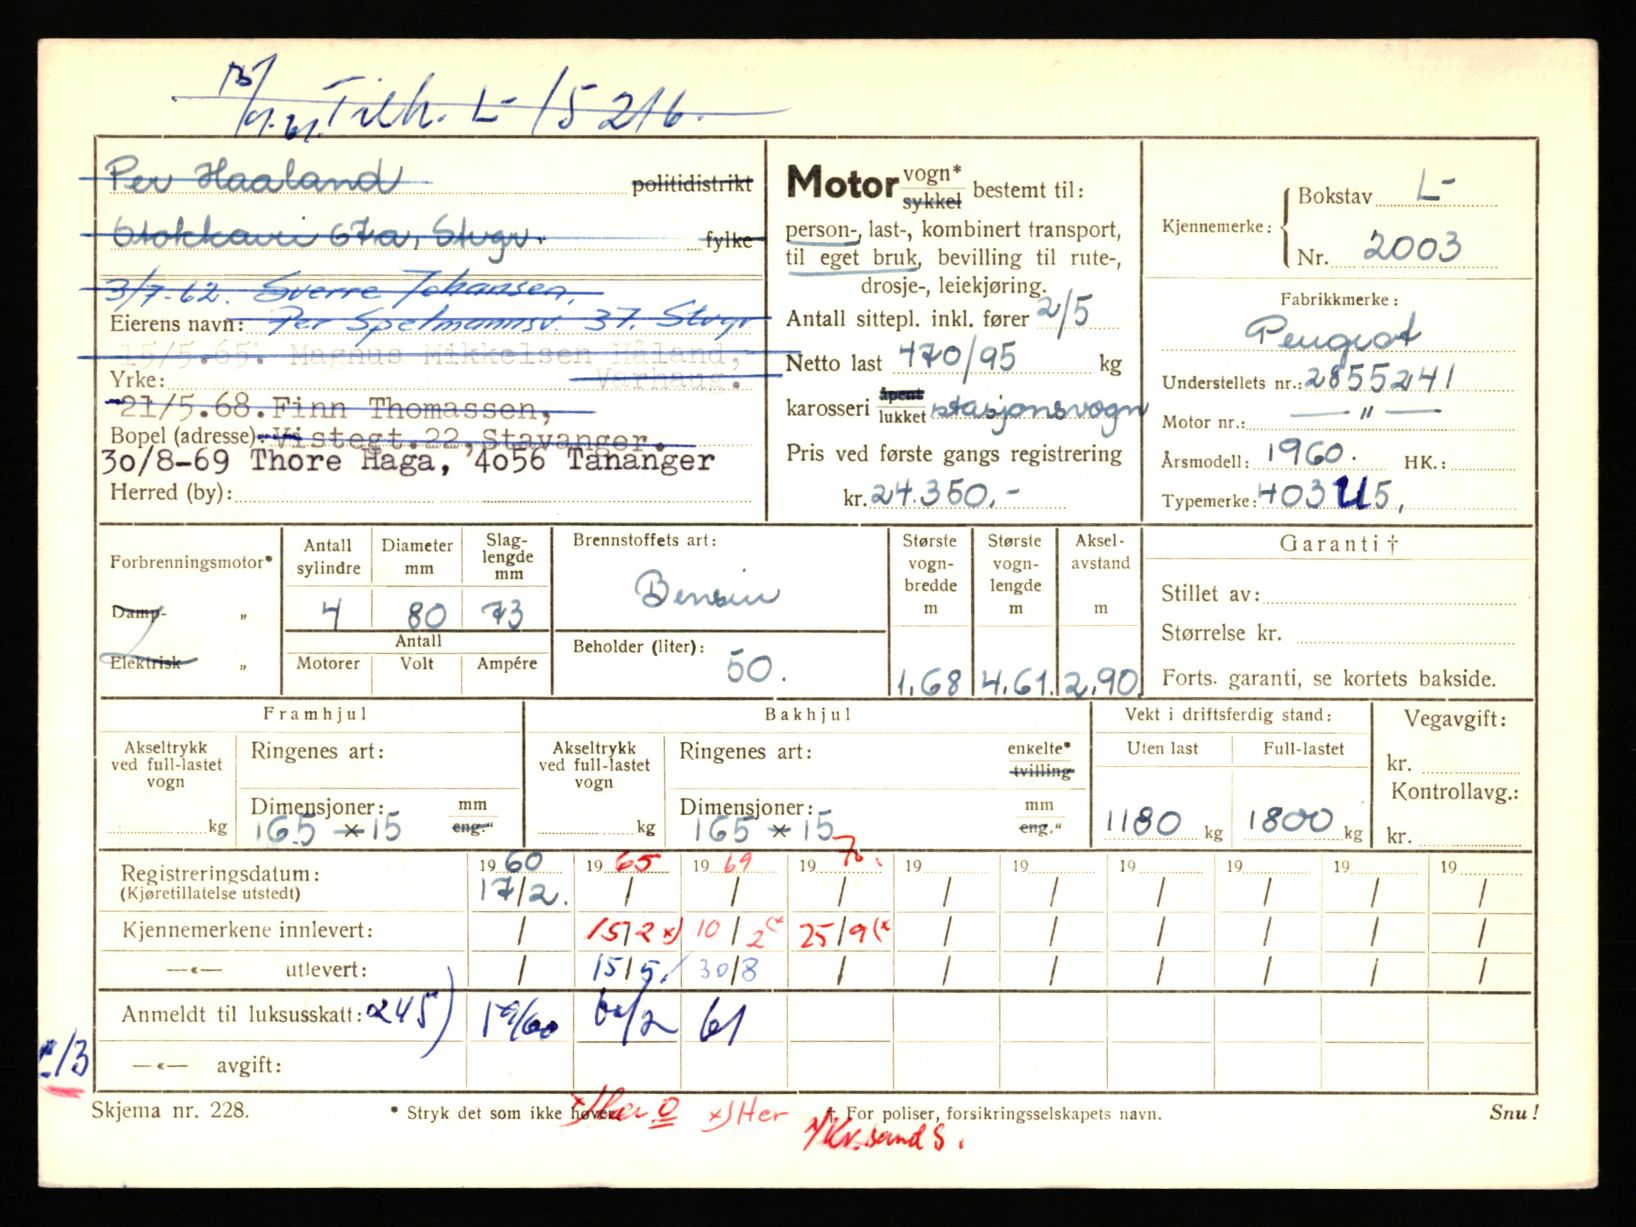 Tilh. L-15216.
Per Haaland politidistrikt
Stokkavei 67a, Stvgr. fylke
3/7-62. Sverre Johansen,
Eierens navn: Per Spelmannsv. 37. Stvgr
15/5.65. Magnus Mikkelsen Håland,
Yrke: Varhaug.
21/5.68. Finn Thomassen,
Bopel (adresse): Vistegt.22, Stavanger.
30/8-69 Thore Haga, 4056 Tananger
Herred (by):
Motor vogn* sykkel bestemt til:
person-, last-, kombinert transport,
til eget bruk, bevilling til rute-,
drosje-, leiekjøring.
Antall sittepl. inkl. fører 2/5
Netto last 470/95 kg
karosseri åpent lukket stasjonsvogn
Pris ved første gangs registrering
kr. 24.350.-
Kjennemerke: Bokstav L-
Nr. 2003
Fabrikkmerke:
Peugeot
Understellets nr.: 2855241
Motor nr.: — " —
Årsmodell: 1960. HK.:
Typemerke: 403 U5,
Forbrenningsmotor*
Damp- "
Elektrisk "
Antall sylindre Diameter mm Slag-lengde mm
4 80 73
Antall
Motorer Volt Ampére
Brennstoffets art:
Bensin
Beholder (liter):
50.
Største vogn-bredde m Største vogn-lengde m Aksel-avstand m
1.68 4.61. 2.90
Garanti †
Stillet av:
Størrelse kr.
Forts. garanti, se kortets bakside.
Framhjul
Akseltrykk ved full-lastet vogn
kg
Ringenes art:
Dimensjoner: mm eng."
165 x 15
Bakhjul
Akseltrykk ved full-lastet vogn
kg
Ringenes art: enkelte* tvilling
Dimensjoner: mm eng."
165 x 15
Vekt i driftsferdig stand:
Uten last Full-lastet
1180 kg 1800 kg
Vegavgift:
kr.
Kontrollavg.:
kr.
1960 1965 1969 1970. 19 19 19 19 19 19
Registreringsdatum: 17/2. / / / / / / / / /
(Kjøretillatelse utstedt)
Kjennemerkene innlevert: / 15/2 x) 10/2 (x 25/9 (x / / / / / /
—«— utlevert: / 15/5. 30/8 / / / / / / /
Anmeldt til luksusskatt: 245) 19/60 61
—«— avgift:
/3
Skjema nr. 228. * Stryk det som ikke høver. † For poliser, forsikringsselskapets navn. Snu!
x) Her x) Her
Kr.sand S.